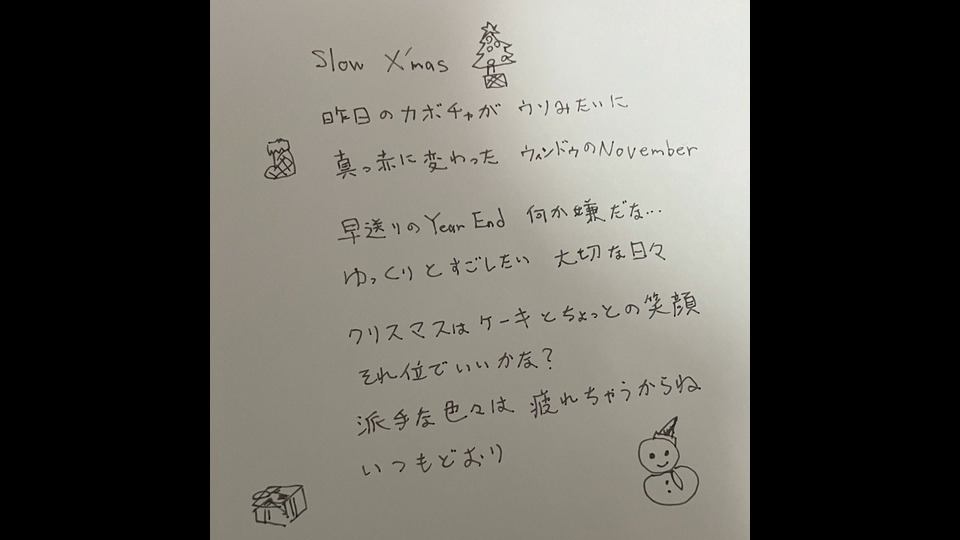 Slow X'mas
昨日のカボチャが ウソみたいに
真っ赤に変わった ウィンドゥのNovember
早送りのYear End 何か嫌だな…
ゆっくりとすごしたい 大切な日々
クリスマスはケーキとちょっとの笑顔
それ位でいいかな?
派手な色々は 疲れちゃうからね
いつもどおり